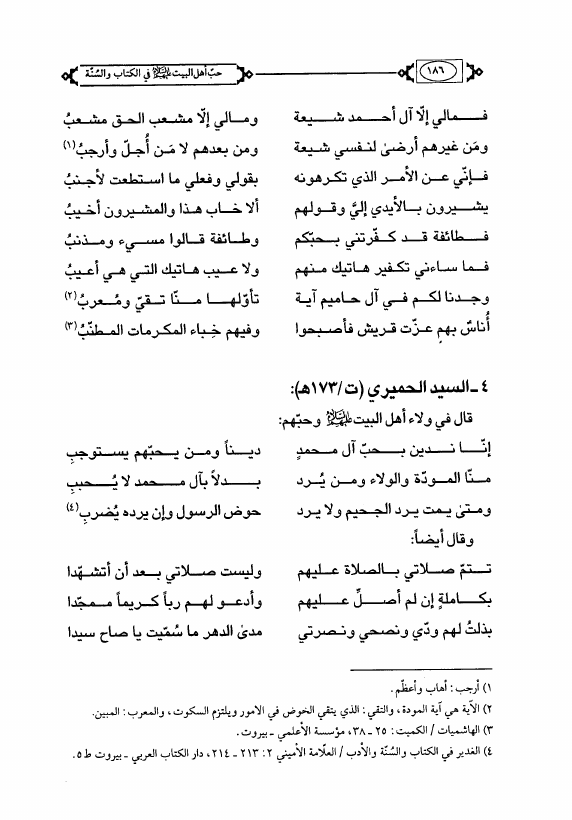 ١٨٦ حبّ أهل البيت عليهم السلام في الكتاب والسُنّة
فـمالي إلّا آل أحـمد شـيعة ومـالي إلّا مشعب الحق مشعبُ
ومَن غيرهم أرضىٰ لنفسي شيعة ومن بعدهم لا مَن أُجلّ وأرجبُ(١)
فـإنّي عـن الأمـر الذي تكـرهونه بقولي وفعلي ما استطعت لأجنبُ
يشـيرون بـالأيدي إليَّ وقـولهم ألا خـاب هـذا والمشيرون أخيبُ
فـطائفة قـد كـفّرتني بـحبّكم وطـائفة قالوا مسـيء ومـذنبُ
فـما ساءني تكـفير هاتيك مـنهم ولا عـيب هاتيك التي هي أعيبُ
وجـدنا لكـم فـي آل حاميم آيـة تأوّلهـا مـنّا تـقيّ ومُـعربُ(٢)
أُناسٌ بهم عـزّت قريش فأصبحوا وفيهم خِباء المكرمات المـطنّبُ(٣)
٤ ـ السيد الحميري (ت/١٧٣هـ):
قال في ولاء أهل البيت عليهم السلام وحبّهم:
إنّـا نـدين بـحبّ آل محمدٍ ديـناً ومـن يـحبّهم يسـتوجبِ
مـنّا المـودّة والولاء ومـن يُـرد بـدلاً بآل مـحمد لا يُـحببِ
ومتىٰ يـمت يـرد الجـحيم ولا يـرد حوض الرسول وإن يرده يُضربِ(٤)
وقال أيضاً:
تـتمّ صـلاتي بـالصلاة عـليهم وليست صـلاتي بـعد أن أتشهّدا
بكـاملةٍ إن لم أصـلِّ عـليهم وأدعـو لهـم رباً كـريماً مـمجّدا
بذلتُ لهم ودّي ونصحي ونـصرتي مدىٰ الدهر ما سُمّيت يا صاح سيدا
١) أرجب: أهاب وأعظّم.
٢) الآية هي آية المودة، والتقي: الذي يتقي الخوض في الامور ويلتزم السكوت، والمعرب: المبين.
٣) الهاشميات / الكميت: ٢٥ ـ ٣٨، مؤسسة الأعلمي ـ بيروت.
٤) الغدير في الكتاب والسُنّة والأدب / العلّامة الأميني ٢: ٢١٣ ـ ٢١٤، دار الكتاب العربي ـ بيروت ط٥.